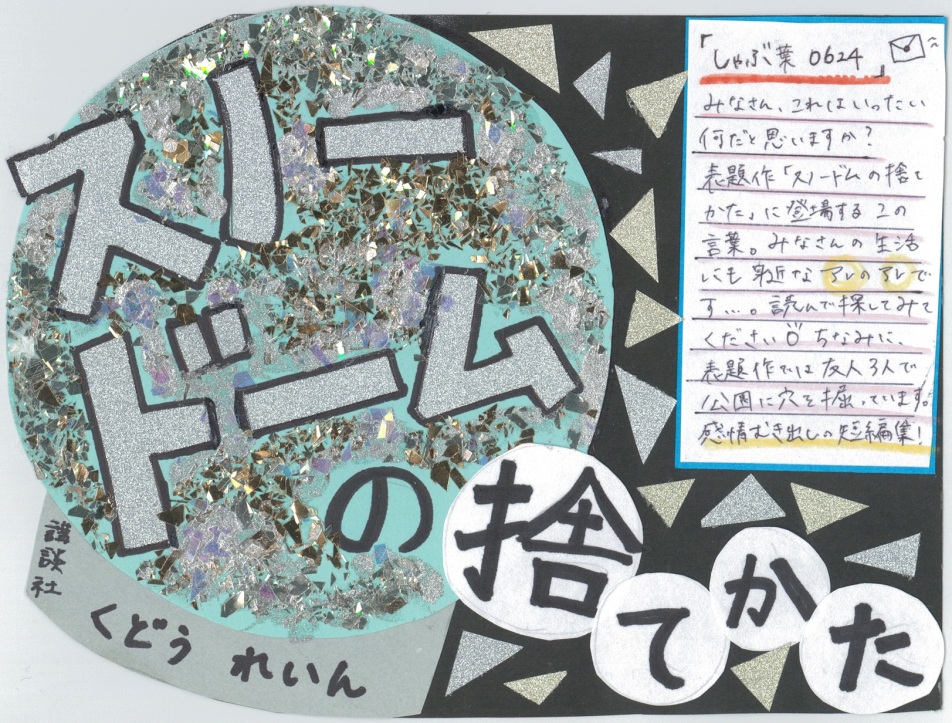 スノー
ドームの
捨てかた
くどう れいん
講談社
「しゃぶ葉 0624」
みなさん、これはいったい
何だと思いますか?
表題作「スノードームの捨て
かた」に登場するこの
言葉。みなさんの生活
にも身近なアレのアレで
す…。読んで探してみて
ください ちなみに、
表題作では友人3人で
公園に穴を掘っています。
感情むき出しの短編集!